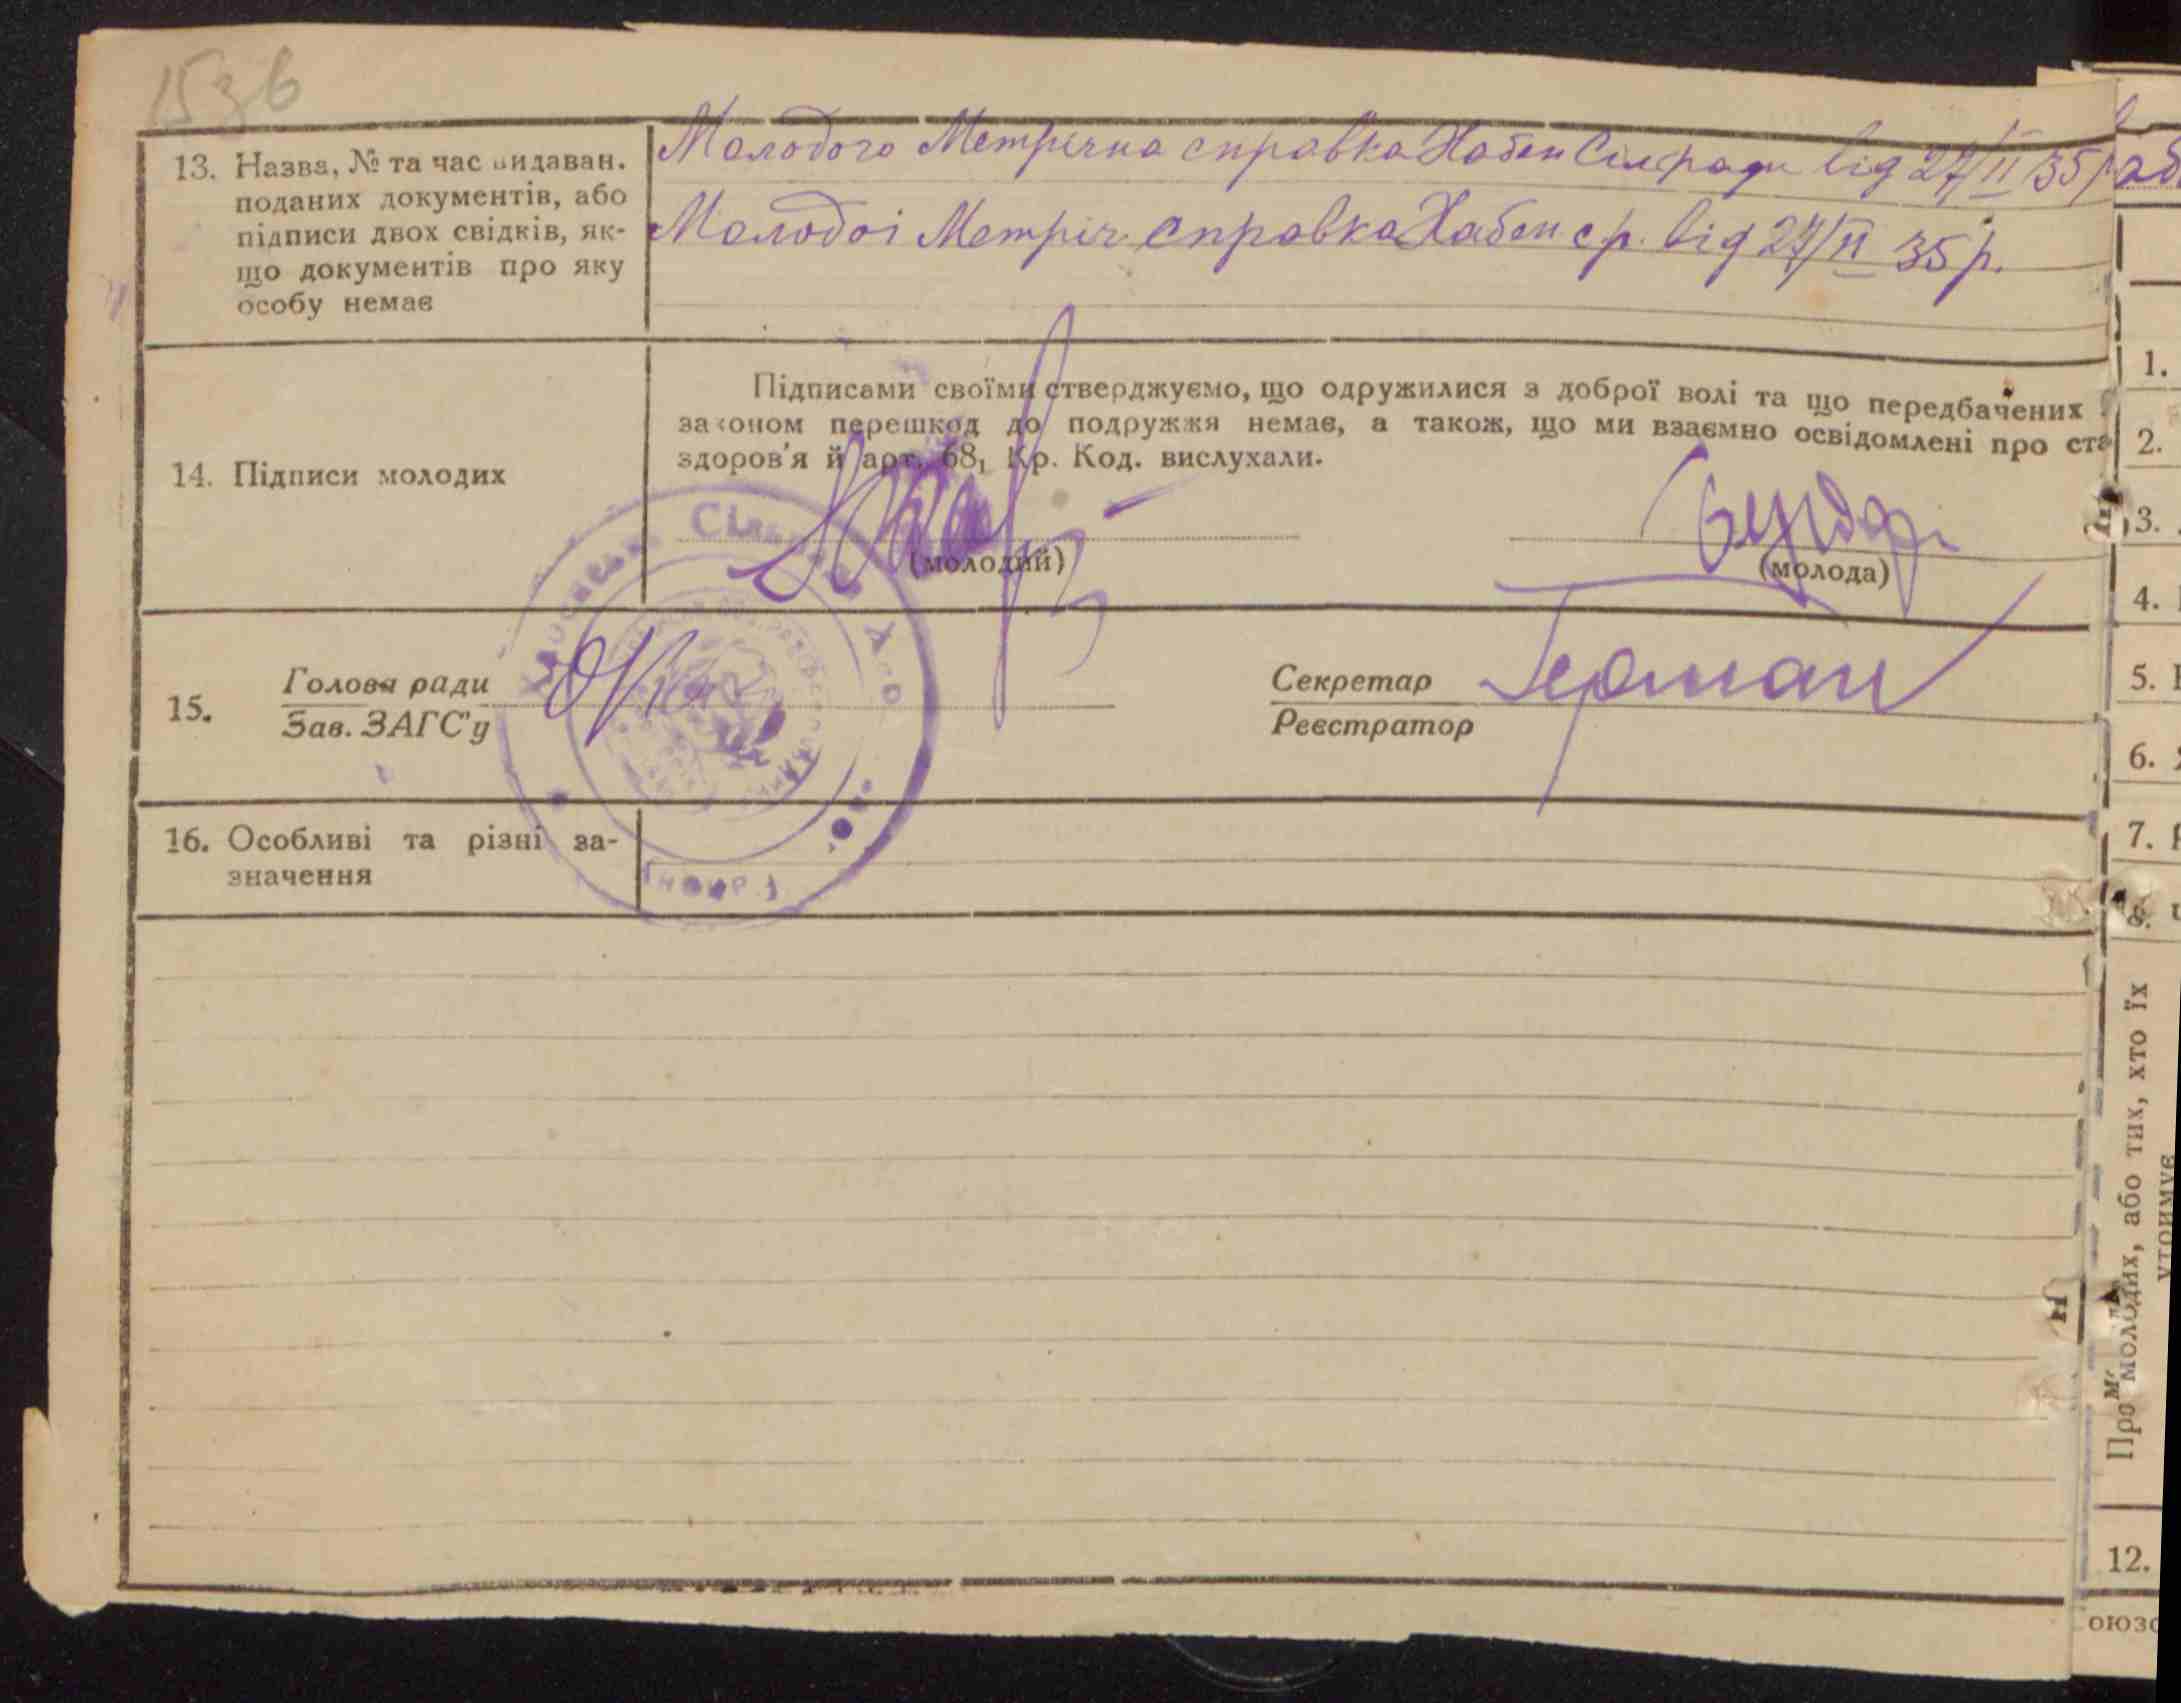 153б
13. Назва, № та час видаван.
поданих документів, або
підписи двох свідків, як-
що документів про яку
особу немає
Молодого Метрична справка Хабен Сілради від 27/II 35 р
Молодоі Метріч справка Хабен с р. від 27/II 35 р.
14. Підписи молодих
Підписами своїми стверджуємо, що одружилися з доброї волі та що передбачених
законом перешкод до подружжя немає, а також, що ми взаємно освідомлені про ста
здоров'я й арт. 68, Кр. Код. вислухали.
(молодий)
(молода)
15. Голова ради
Зав. ЗАГС'у
Секретар Герман
Реєстратор
16. Особливі та різні за-
значення
1.
2.
3.
4.
5.
6.
7.
8.
Про молодих, або тих, хто їх
утримує
12.
оюзо